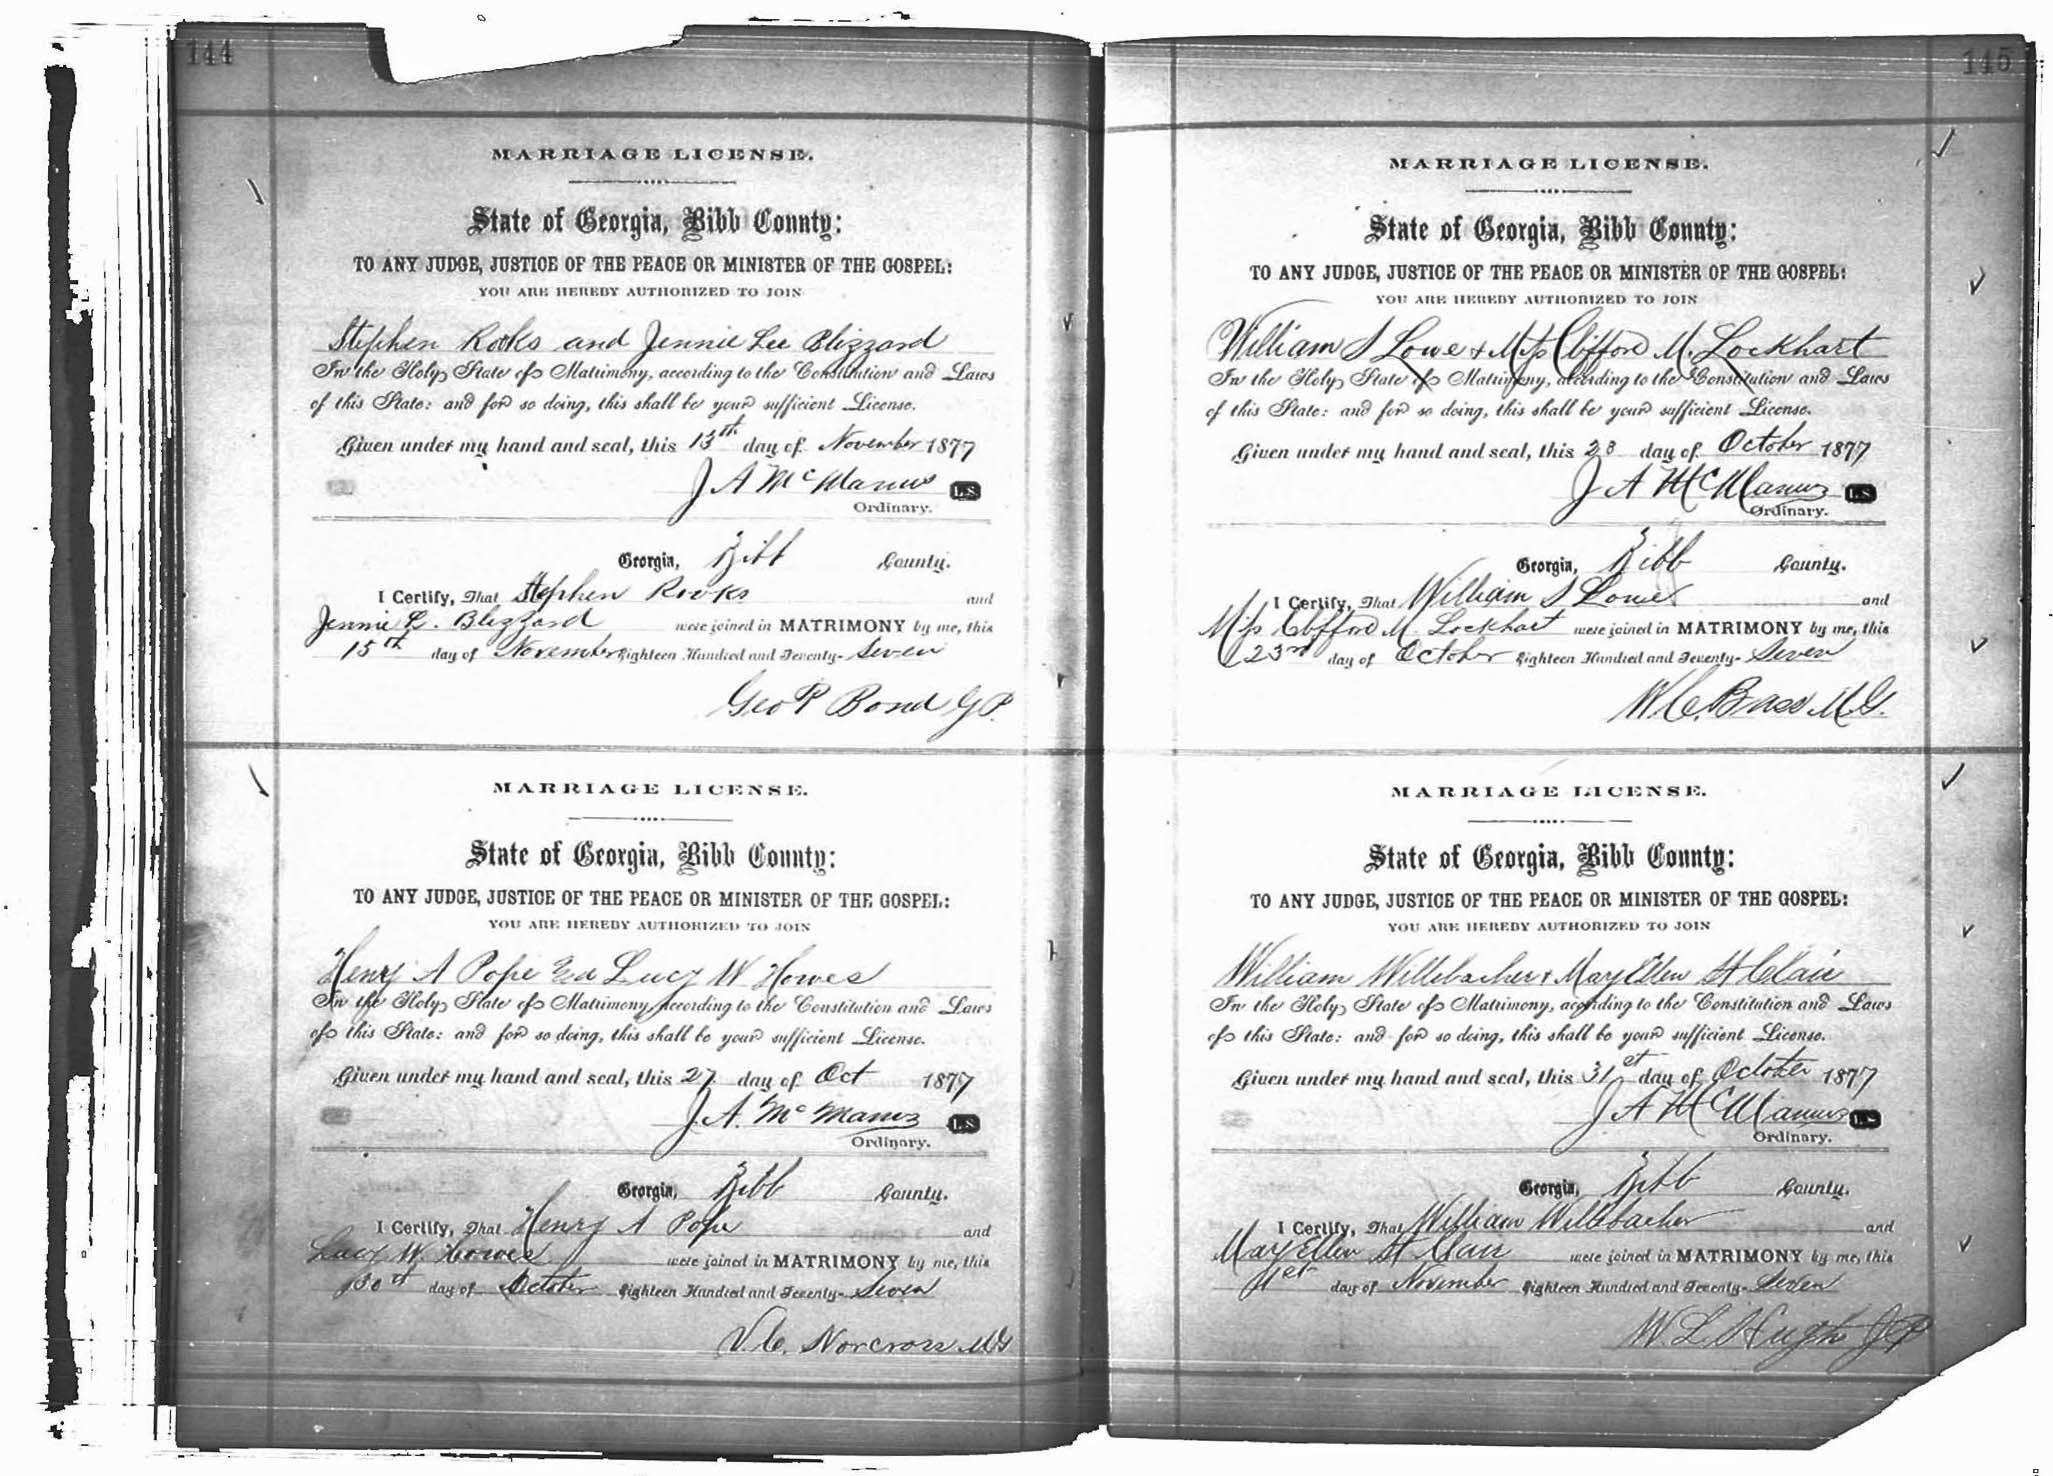 144
MARRIAGE LICENSE.
State of Georgia, Bibb County:
TO ANY JUDGE, JUSTICE OF THE PEACE OR MINISTER OF THE GOSPEL:
YOU ARE HEREBY AUTHORIZED TO JOIN
Stephen Rooks and Jennie Lee Blizzard
In the Holy State of Matrimony, according to the Constitution and Laws
of this State: and for so doing, this shall be your sufficient License.
Given under my hand and seal, this 13th day of November 1877
J A McManus L.S.
Ordinary.
Georgia, Bibb County.
I Certify, That Stephen Rooks and
Jennie L. Blizzard were joined in MATRIMONY by me, this
15th day of November Eighteen Hundred and Seventy-Seven
Geo P Bond J.P.
MARRIAGE LICENSE.
State of Georgia, Bibb County:
TO ANY JUDGE, JUSTICE OF THE PEACE OR MINISTER OF THE GOSPEL:
YOU ARE HEREBY AUTHORIZED TO JOIN
Henry A Pope and Lucy W Howes
In the Holy State of Matrimony, according to the Constitution and Laws
of this State: and for so doing, this shall be your sufficient License.
Given under my hand and seal, this 27 day of Oct 1877
J. A. McManus L.S.
Ordinary.
Georgia, Bibb County.
I Certify, That Henry A Pope and
Lucy W. Howes were joined in MATRIMONY by me, this
30th day of October Eighteen Hundred and Seventy-Seven
V. C. Norcross MG
145
MARRIAGE LICENSE.
State of Georgia, Bibb County:
TO ANY JUDGE, JUSTICE OF THE PEACE OR MINISTER OF THE GOSPEL:
YOU ARE HEREBY AUTHORIZED TO JOIN
William S Lowe & Miss Clifford M. Lockhart
In the Holy State of Matrimony, according to the Constitution and Laws
of this State: and for so doing, this shall be your sufficient License.
Given under my hand and seal, this 23 day of October 1877
J A McManus L.S.
Ordinary.
Georgia, Bibb County.
I Certify, That William S Lowe and
Miss Clifford M. Lockhart were joined in MATRIMONY by me, this
23rd day of October Eighteen Hundred and Seventy-Seven
W. C. Bass M.G.
MARRIAGE LICENSE.
State of Georgia, Bibb County:
TO ANY JUDGE, JUSTICE OF THE PEACE OR MINISTER OF THE GOSPEL:
YOU ARE HEREBY AUTHORIZED TO JOIN
William Willebacher & Mary Ellen St Clair
In the Holy State of Matrimony, according to the Constitution and Laws
of this State: and for so doing, this shall be your sufficient License.
Given under my hand and seal, this 31st day of October 1877
J A McManus L.S.
Ordinary.
Georgia, Bibb County.
I Certify, That William Willebacher and
Mary Ellen St Clair were joined in MATRIMONY by me, this
1st day of November Eighteen Hundred and Seventy-Seven
W. L. Hugh J P